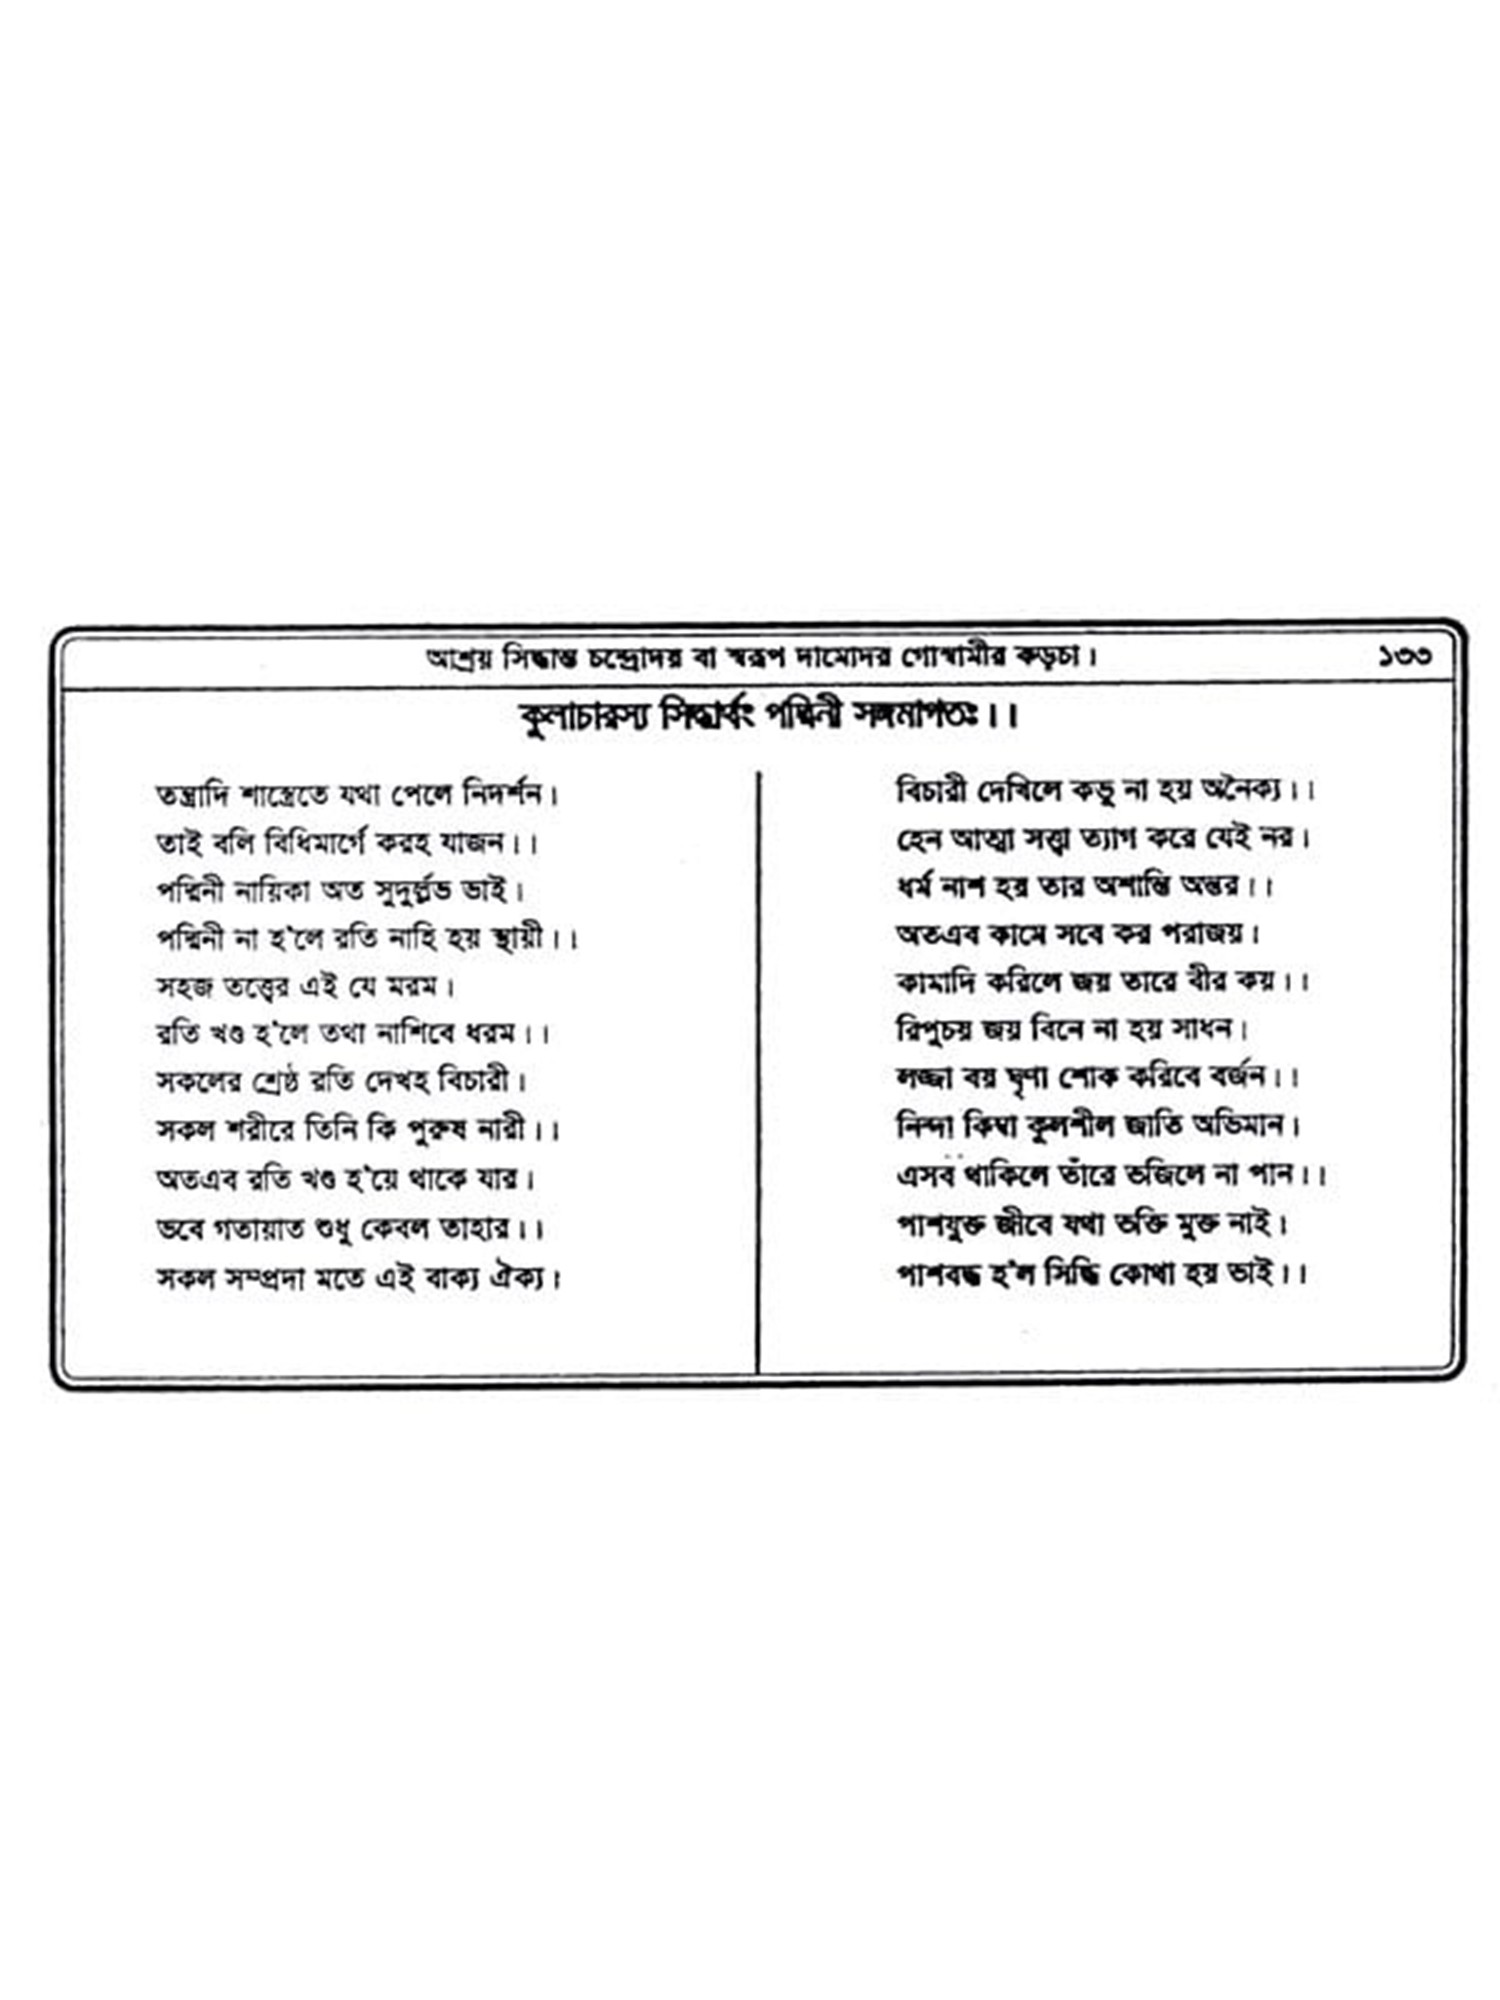 আশ্রয় সিদ্ধান্ত চন্দ্রোদয় বা স্বরূপ দামোদর গোস্বামীর কড়চা। ১৩৩
কুলাচারস্য সিদ্ধার্থং পদ্মিনী সঙ্গমাপতঃ।।
তন্ত্রাদি শাস্ত্রেতে যথা পেলে নিদর্শন।
তাই বলি বিধিমার্গে করহ যাজন।।
পদ্মিনী নায়িকা অত সুদুর্ল্লভ ভাই।
পদ্মিনী না হ'লে রতি নাহি হয় স্থায়ী।।
সহজ তত্ত্বের এই যে মরম।
রতি খণ্ড হ'লে তথা নাশিবে ধরম।।
সকলের শ্রেষ্ঠ রতি দেখহ বিচারী।
সকল শরীরে তিনি কি পুরুষ নারী।।
অতএব রতি খণ্ড হ'য়ে থাকে যার।
ভবে গতায়াত শুধু কেবল তাহার।।
সকল সম্প্রদা মতে এই বাক্য ঐক্য।
বিচারী দেখিলে কভু না হয় অনৈক্য।।
হেন আত্মা সত্ত্বা ত্যাগ করে যেই নর।
ধর্ম নাশ হয় তার অশান্তি অন্তর।।
অতএব কামে সবে কর পরাজয়।
কামাদি করিলে জয় তারে বীর কয়।।
রিপুচয় জয় বিনে না হয় সাধন।
লজ্জা বয় ঘৃণা শোক করিবে বর্জন।।
নিন্দা কিম্বা কুলশীল জাতি অভিমান।
এসব থাকিলে তাঁরে ভজিলে না পান।।
পাশযুক্ত জীবে যথা ভক্তি মুক্ত নাই।
পাশবদ্ধ হ'ল সিদ্ধি কোথা হয় ভাই।।